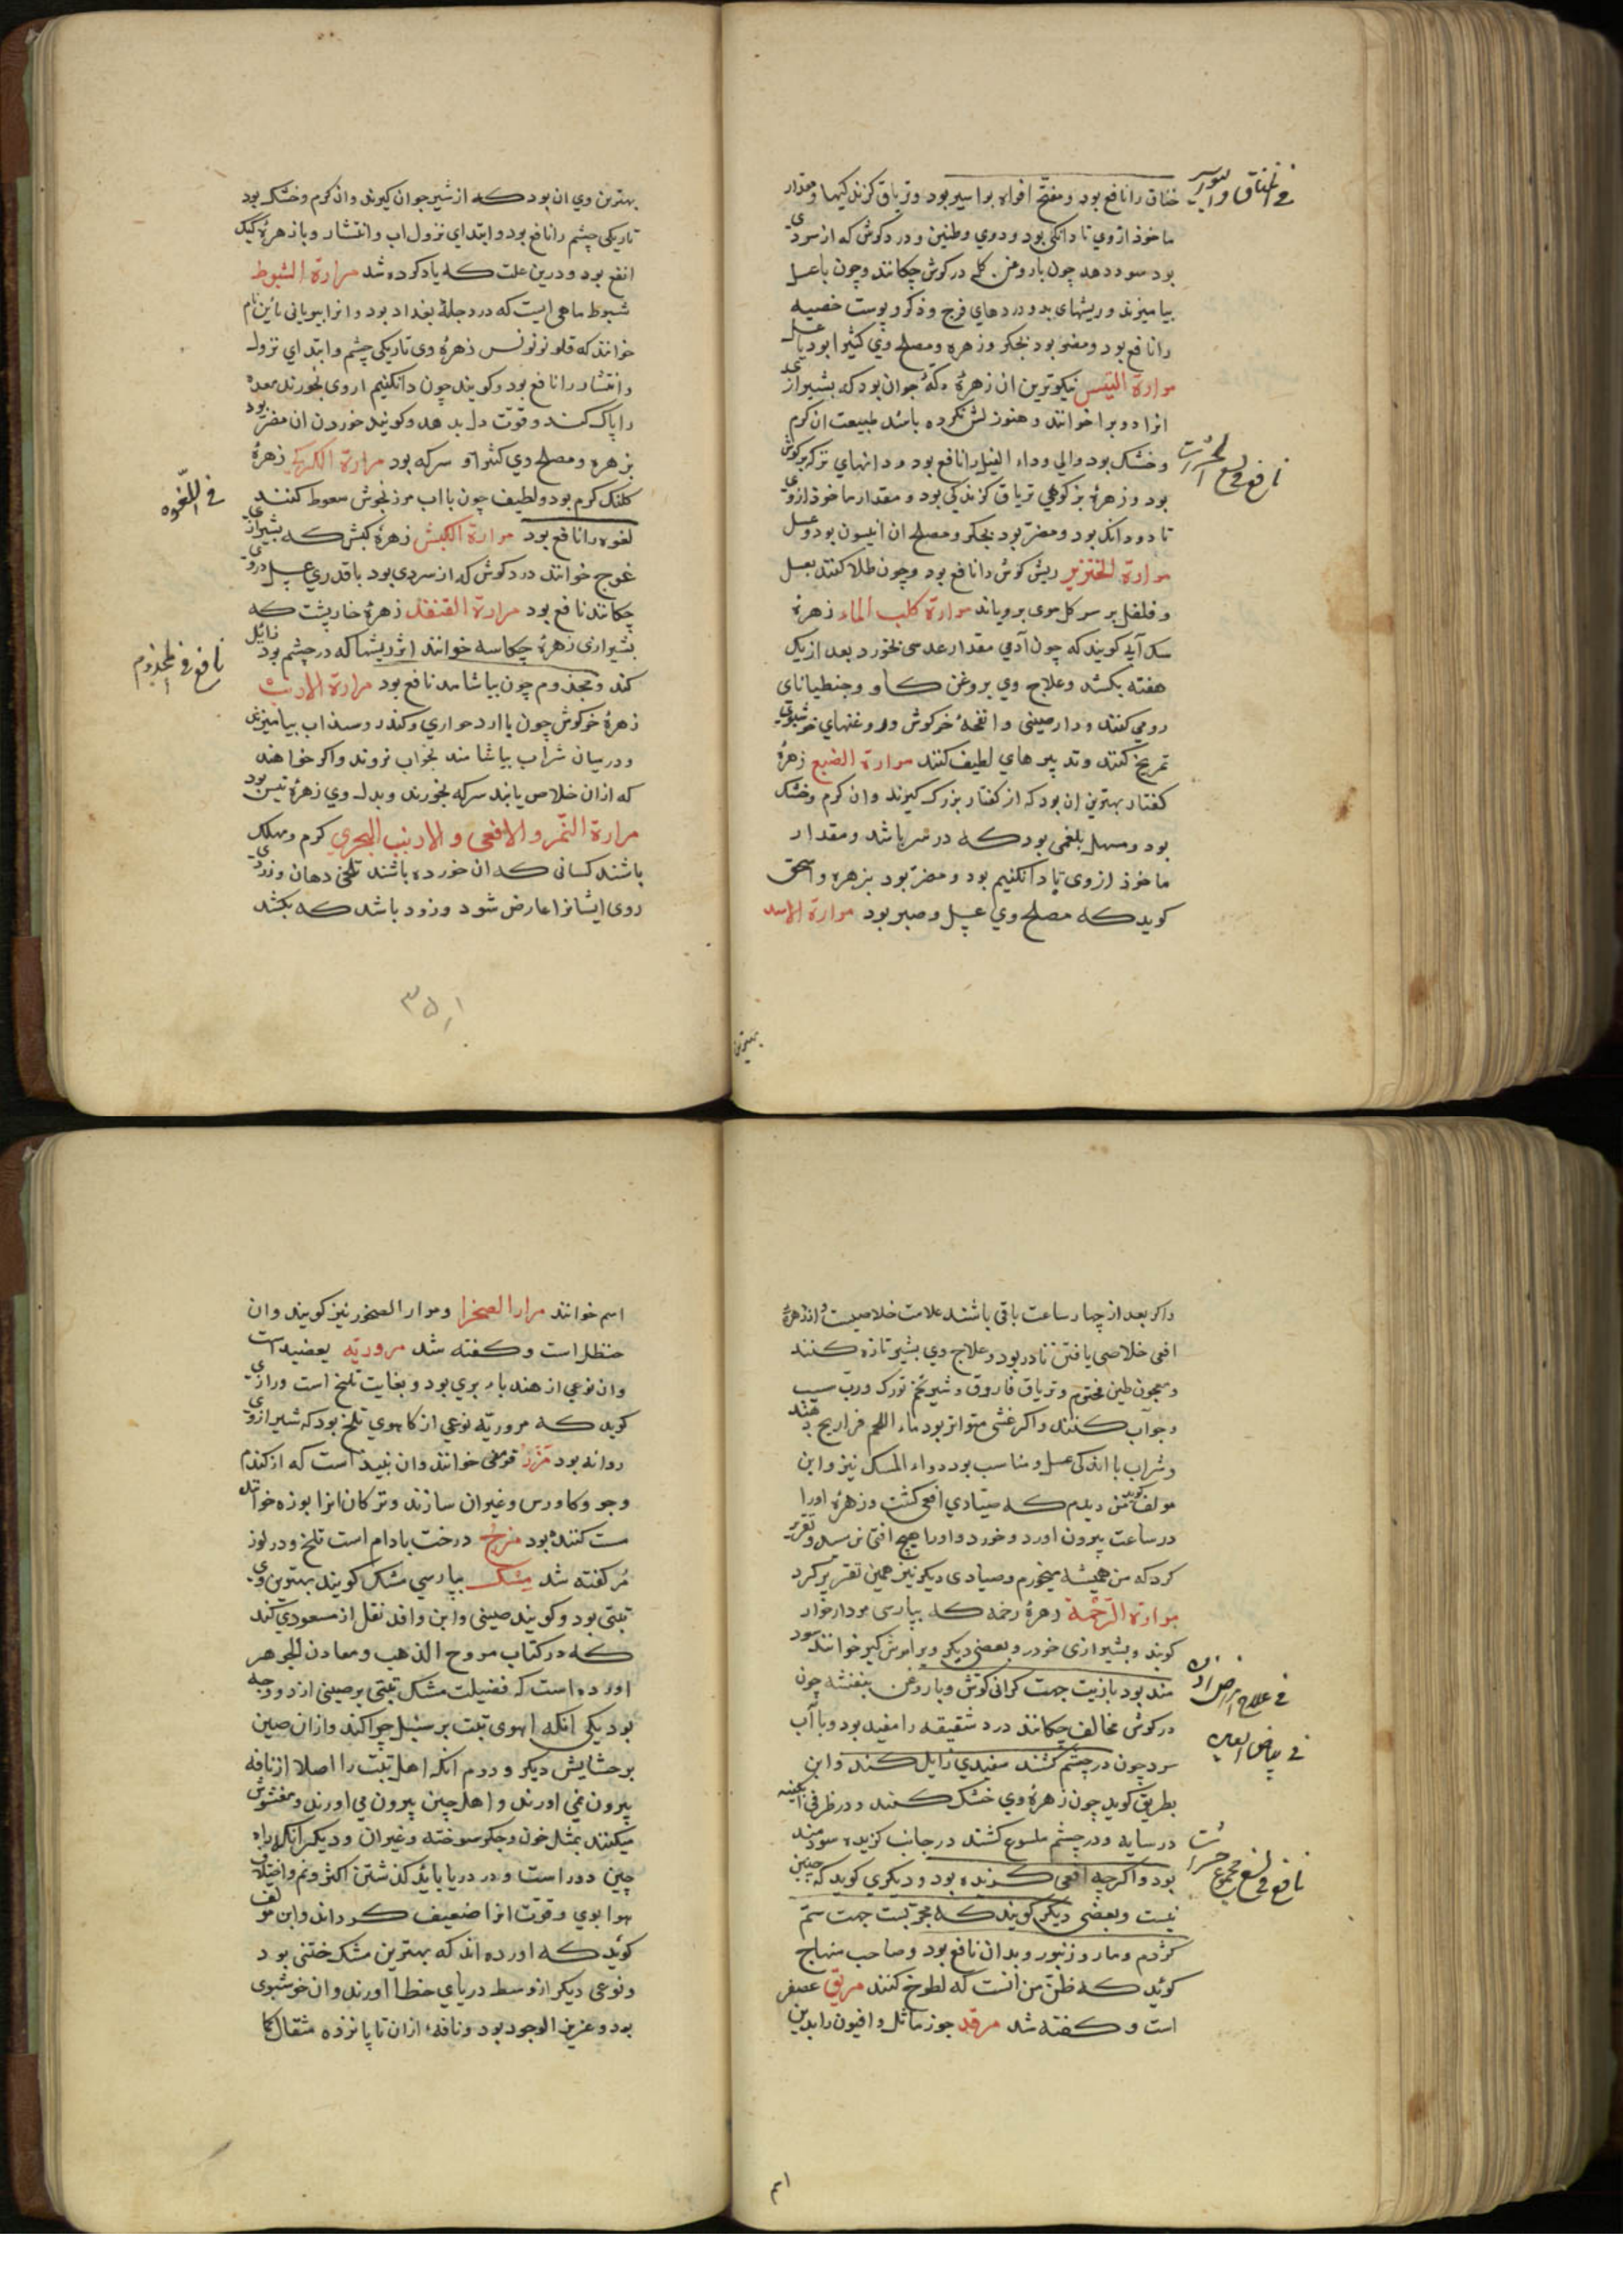 خناق را نافع بود ومفتّح افواه بواسیر بود وتریاق کزندکیها ومقدار
ماخوذ ازوی تا دانکی بود ودوی وطنین ودرد کوش که از سردی
بود سود دهد چون با روغن کل در کوش چکانند وچون با عسل
بیامیزند وریشهای بد ودردهای فرج وذکر وپوست خصیه
را نافع بود ومضر بود بجکر وزهره ومصلح وی کثیرا بود با عسل
مرارة التیس نیکوترین ان زهرهٔ تکهٔ جوان بود که بشیرازی
انرا دوبرا خوانند وهنوز لش نکرده باشد طبیعت ان کرم
وخشک بود والی وداء الفیل را نافع بود ودانهای تر که بر کوش
بود وزهرهٔ بز کوهی تریاق کزندکی بود ومقدار ماخوذ ازوی
تا دو دانک بود ومضرّ بود بجکر ومصلح ان انیسون بود وعسل
مرارة الخنزیر ریش کوش را نافع بود وچون طلا کنند بعسل
وفلفل بر سر کل موی برویاند مرارة کلب الماء زهرهٔ
سک آبی کویند که چون آدمی مقدار عدسی بخورد بعد از یک
هفته بکشد وعلاج وی بروغن کاو وجنطیانای
رومی کنند ودارصینی وانفحهٔ خرکوش وروغنهای خوشبوی
تمریخ کنند وتدبیرهای لطیف کنند مرارة الضبع زهرهٔ
کفتار بهترین ان بود که از کفتار بزرک کیرند وان کرم وخشک
بود ومسهل بلغمی بود که در سر باشد ومقدار
ماخوذ ازوی تا دانکنیم بود ومضرّ بود بزهره واسحق
کوید که مصلح وی عسل وصبر بود مرارة الاسد
فی الخناق والبواسیر
نافع فی لسع الحشرات
بهترین
بهترین وی ان بود که از شیر جوان کیرند وان کرم وخشک بود
تاریکی چشم را نافع بود وابتدای نزول اب وانتشار وبا زهرهٔ کبک
انفع بود ودرین علت که یاد کرده شد مرارة الشبوط
شبوط ماهی ایست که در دجلهٔ بغداد بود وانرا بیونانی باین نام
خوانند که قلونونونس زهرهٔ وی تاریکی چشم وابتدای نزول
وانتشار را نافع بود وکویند چون دانکنیم ازوی بخورند معده
را پاک کند وقوّت دل بدهد وکویند خوردن ان مضرّ بود
بزهره ومصلح وی کثیرا وسرکه بود مرارة الکرکی زهرهٔ
کلنک کرم بود ولطیف چون با اب مرزنجوش سعوط کنند
لقوه را نافع بود مرارة الکبش زهرهٔ کبش که بشیرازی
غوج خوانند درد کوش که از سردی بود با قدری عسل دروی
چکانند نافع بود مرارة القنفذ زهرهٔ خارپشت که
بشیرازی زهرهٔ چکاسه خوانند اثر ریشها که در چشم بود زایل
کند ومجذوم چون بیاشامد نافع بود مرارة الارنب
زهرهٔ خرکوش چون با ارد حواری وکندر وسذاب بیامیزند
ودر میان شراب بیاشامند بخواب نروند واکر خواهند
که ازان خلاص یابند سرکه بخورند وبدل وی زهرهٔ تیس بود
مرارة النّمر والافعی والارنب البحری کرم ومهلک
باشند کسانی که ان خورده باشند تلخی دهان وزردی
روی ایشانرا عارض شود وزود باشد که بکشد
فی اللّقوه
نافع فی المجذوم
۳۵۱
واکر بعد از چهار ساعت باقی باشند علامت خلاصیست واز زهرهٔ
افعی خلاصی یافتن نادر بود وعلاج وی بشیر تازه کنند
ومعجون طین مختوم وتریاق فاروق وشیر تخم تورک وربّ سیب
وجوآب کنند واکر غشی متواتر بود ماء اللحم فراریج دهند
وشراب با اندکی عسل ومناسب بود دواء المسک نیز واین
مولف کوید من دیدم که صیّادی افعی کشت وزهرهٔ اورا
در ساعت بیرون اورد وخورد واورا هیچ افتی نرسید وتقریر
کرد که من همیشه میخورم وصیادی دیکر نیز همین تقریر کرد
مرارة الرّخمة زهرهٔ رخمه که بپارسی مردارخوار
کویند وبشیرازی خودر وبعضی دیکر وبراموش کیر خوانند سود
مند بود با زیت جهت کرانی کوش وبا روغن بنفشه چون
در کوش مخالف چکانند درد شقیقه را مفید بود وبا آب
سرد چون در چشم کشند سفیدی زایل کند وابن
بطریق کوید چون زهرهٔ وی خشک کنند ودر ظرفی ابکینه
در سایه ودر چشم ملسوع کشند در جانب کزیده سودمند
بود واکرچه افعی کزیده بود ودیکری کوید که چنین
نیست وبعضی دیکر کویند که مجرّبست جهت سمّ
کژدم ومار وزنبور وبدان نافع بود وصاحب منهاج
کوئید که ظنّ من انست که لطوخ کنند مریق عصفر
است وکفته شد مرقد جوز ماثل وافیون را بدین
فی بیاض العین
اسم
اسم خوانند مرار الصخرا ومرار الصخور نیز کویند وان
حنظل است وکفته شد مروریّه یعضیدست
وان نوعی از هندباء بری بود وبغایت تلخ است ورازی
کوید که مروریّه نوعی از کاهوی تلخ بود که شیر ازوی
روانه بود مَزَرْ قومعی خوانند وان نبیذ است که از کندم
وجو وکاورس وغیران سازند وترکان انرا بوزه خوانند
مست کننده بود مزج درخت بادام است تلخ ودر لوز
مُر کفته شد مسک بپارسی مشک کویند بهترین وی
تبتی بود وکویند صینی وابن وافد نقل از مسعودی کند
که در کتاب مروج الذهب ومعادن الجوهر
اورده است که فضیلت مشک تبتی بر صینی از دو وجه
بود یکی انکه اهوی تبت بر سنبل چرا کند وازان صین
بر حشایش دیکر ودوم انکه اهل تبّت را اصلا از نافه
بیرون نمی اورند واهل چین بیرون می اورند ومغشوش
میکنند بمثل خون وجکر سوخته وغیران ودیکر انکه راه
چین دور است ودر دریا باید کذشتن اکثر ونم واختلاف
هوا بوی وقوّت انرا ضعیف کرداند وابن مولف
کوئید که اورده اند که بهترین مشک ختنی بود
ونوعی دیکر از وسط دریای خطا اورند وان خوشبوی
بود وعزیز الوجود بود ونافه ازان تا پانزده مثقال